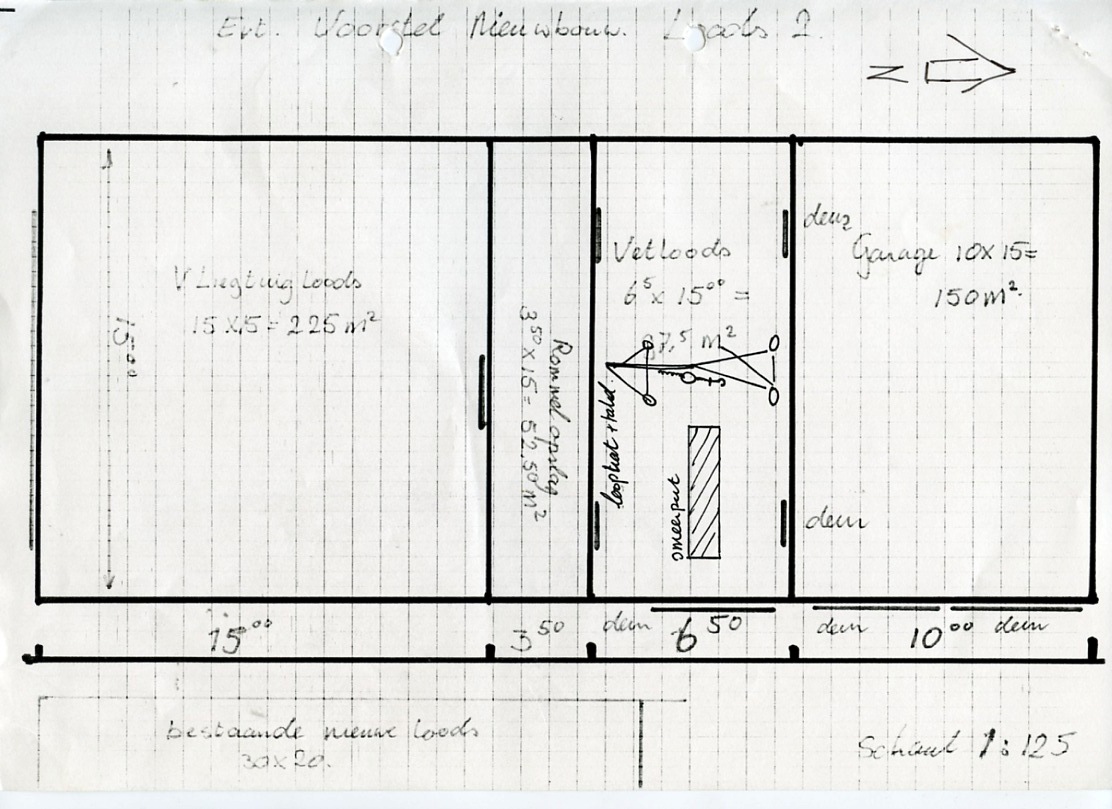 Evt. Voorstel Nieuwbouw. Loods 2.
N
Vliegtuig loods
15 x 15 = 225 m²
15⁰⁰
Rommel opslag
3⁵⁰ x 15 = 52,50 m²
Vetloods
6⁵ x 15⁰⁰ =
97,5 m²
loopkat + takel
smeerput
deur
Garage 10 x 15 =
150 m²
deur
15⁰⁰
3⁵⁰
deur
6⁵⁰
deur
10⁰⁰
deur
bestaande nieuwe loods
30 x 20.
Schaal 1:125